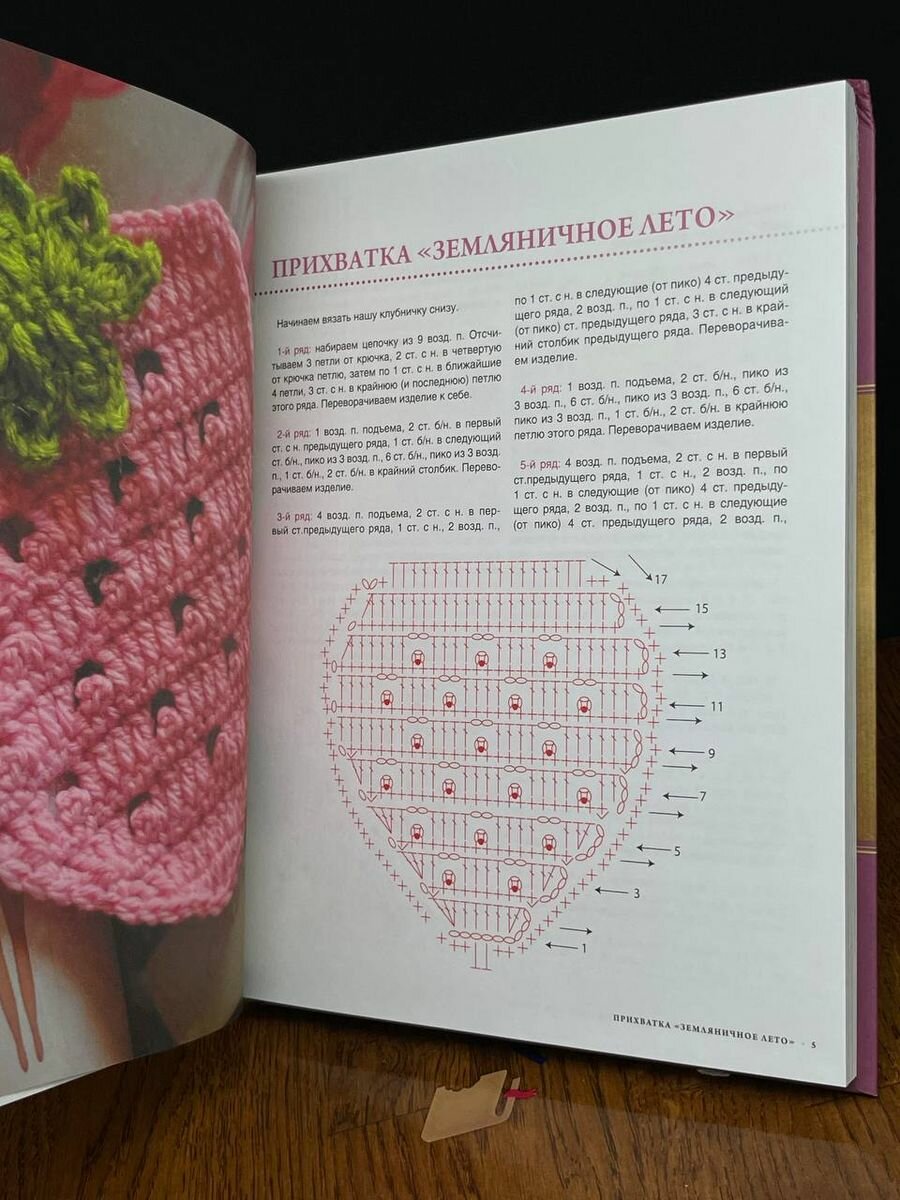 ПРИХВАТКА «ЗЕМЛЯНИЧНОЕ ЛЕТО»
Начинаем вязать нашу клубничку снизу.
1-й ряд: набираем цепочку из 9 возд. п. Отсчи-
тываем 3 петли от крючка, 2 ст. с н. в четвертую
от крючка петлю, затем по 1 ст. с н. в ближайшие
4 петли, 3 ст. с н. в крайнюю (и последнюю) петлю
этого ряда. Переворачиваем изделие к себе.
2-й ряд: 1 возд. п. подъема, 2 ст. б/н. в первый
ст. с н. предыдущего ряда, 1 ст. б/н. в следующий
ст. б/н., пико из 3 возд. п., 6 ст. б/н., пико из 3 возд.
п., 1 ст. б/н., 2 ст. б/н. в крайний столбик. Перево-
рачиваем изделие.
3-й ряд: 4 возд. п. подъема, 2 ст. с н. в пер-
вый ст.предыдущего ряда, 1 ст. с н., 2 возд. п.,
по 1 ст. с н. в следующие (от пико) 4 ст. предыду-
щего ряда, 2 возд. п., по 1 ст. с н. в следующий
(от пико) ст. предыдущего ряда, 3 ст. с н. в край-
ний столбик предыдущего ряда. Переворачива-
ем изделие.
4-й ряд: 1 возд. п. подъема, 2 ст. б/н., пико из
3 возд. п., 6 ст. б/н., пико из 3 возд. п., 6 ст. б/н.,
пико из 3 возд. п., 1 ст. б/н., 2 ст. б/н. в крайнюю
петлю этого ряда. Переворачиваем изделие.
5-й ряд: 4 возд. п. подъема, 2 ст. с н. в первый
ст.предыдущего ряда, 1 ст. с н., 2 возд. п., по
1 ст. с н. в следующие (от пико) 4 ст. предыду-
щего ряда, 2 возд. п., по 1 ст. с н. в следующие
(от пико) 4 ст. предыдущего ряда, 2 возд. п.,
17
15
13
11
9
7
5
3
1
ПРИХВАТКА «ЗЕМЛЯНИЧНОЕ ЛЕТО» · 5